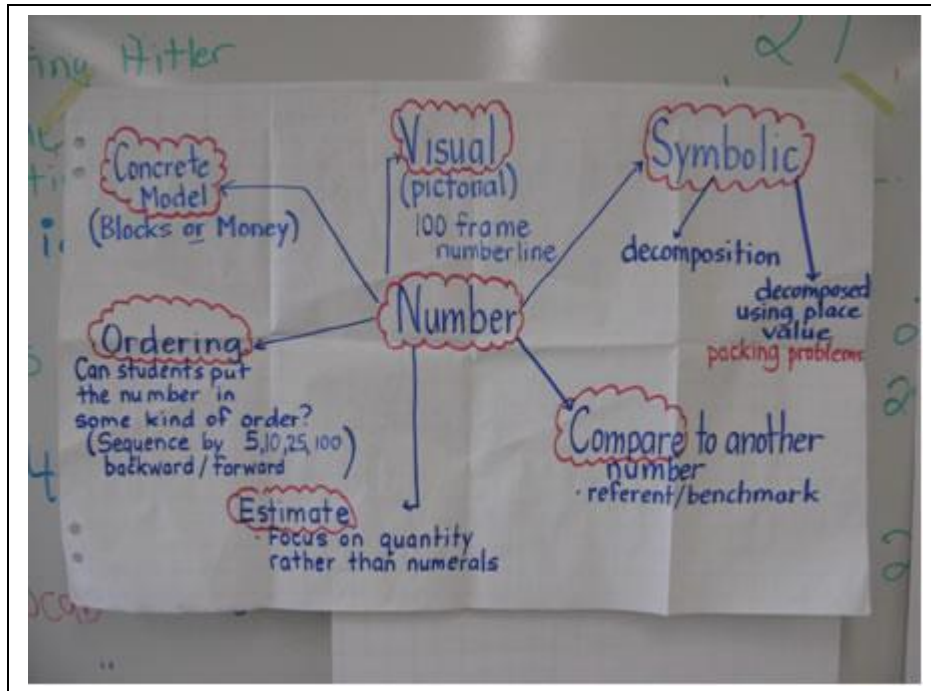 Hitler
27
Concrete
Model
(Blocks or Money)
Visual
(pictorial)
100 frame
numberline
Symbolic
decomposition
decomposed
using place
value
packing problems
Number
Ordering
Can students put
the number in
some kind of order?
(Sequence by 5,10,25,100
backward/forward)
Compare to another
number
· referent/benchmark
Estimate
· Focus on quantity
rather than numerals
2
2